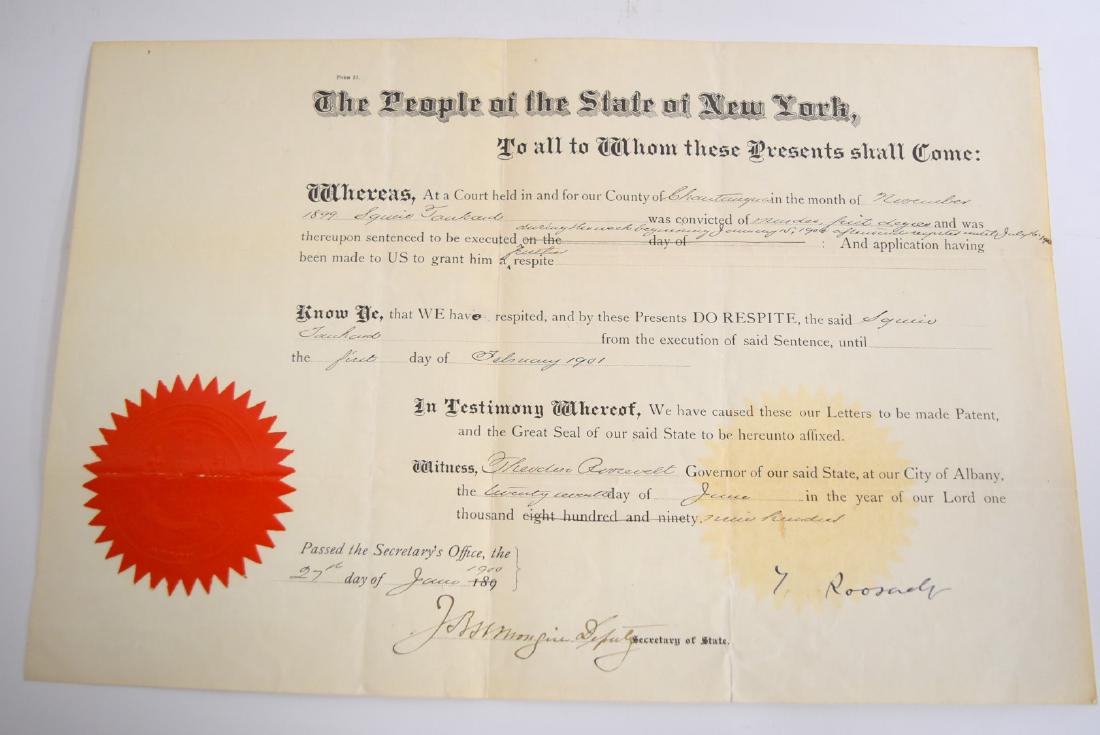 Form 21.
The People of the State of New York,
To all to Whom these Presents shall Come:
Whereas, At a Court held in and for our County of Chautauqua in the month of November
1899 Squire Tankard was convicted of murder, first degree and was
during the week beginning January 1900 afterwards respited until July 1900
thereupon sentenced to be executed on the day of : And application having
further
been made to US to grant him a respite
Know Ye, that WE have respited, and by these Presents DO RESPITE, the said Squire
Tankard from the execution of said Sentence, until
the first day of February 1901
In Testimony Whereof, We have caused these our Letters to be made Patent,
and the Great Seal of our said State to be hereunto affixed.
Witness, Theodore Roosevelt Governor of our said State, at our City of Albany,
the twenty seventh day of June in the year of our Lord one
thousand eight hundred and ninety, nine hundred
Passed the Secretary's Office, the
1900
27th day of June 189
T. Roosevelt
Deputy Secretary of State.